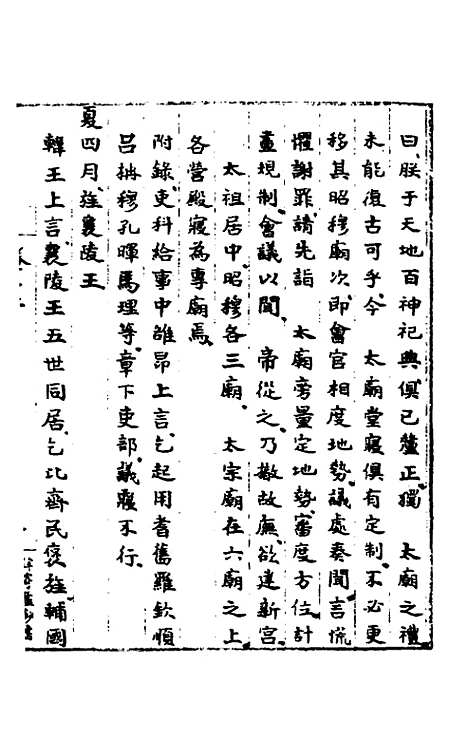 曰朕于天地百神祀典俱已釐正獨　太廟之禮
未能復古可乎今　太廟堂寢俱有定制不必更
移其昭穆廟次即會官相度地勢議處奏聞言慌
懼謝罪請先詣　太廟旁量定地勢審度方位計
畫規制會議以聞　帝從之乃撤故廡欲建新宮
　太祖居中昭穆各三廟　太宗廟在六廟之上
各營殿寢為專廟焉
附錄吏科給事中誰昂上言乞起用耆舊羅欽順
呂柟穆孔暉馬理等章下吏部議寢不行
夏四月旌襄陵王
韓王上言襄陵王五世同居乞比齊民褒旌輔國